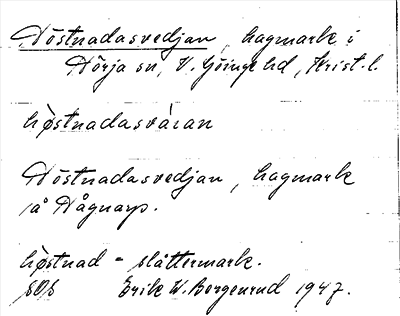 Höstnadasvedjan, hagmark i
Hörja sn, V. Göinge hd, Krist. l.
høstnadasváran
Höstnadasvedjan, hagmark
på Hågnarp.
høstnad = slåttermark.
SOS Erik W. Borgenrud 1947.